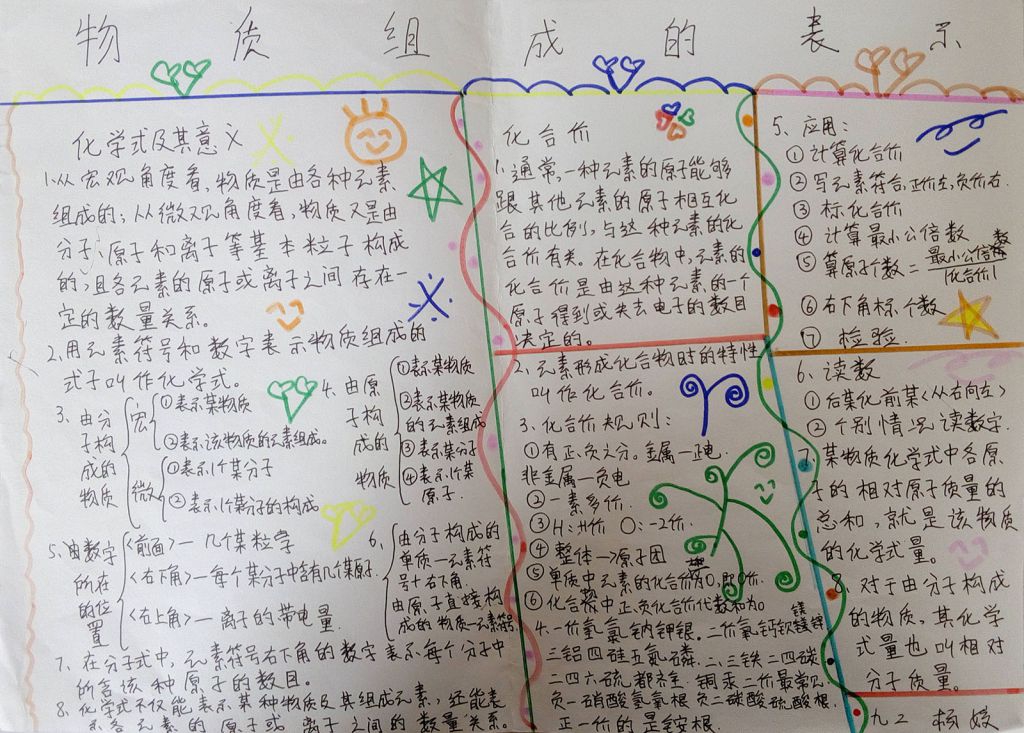 物质组成的表示
化学式及其意义
1.从宏观角度看,物质是由各种元素
组成的;从微观角度看,物质又是由
分子、原子和离子等基本粒子构成
的,且各元素的原子或离子之间存在一
定的数量关系。
2.用元素符号和数字表示物质组成的
式子叫作化学式。
3、由分子构成的物质
宏
①表示某物质
②表示该物质的元素组成。
微
①表示1个某分子
②表示1个某分子的构成
4、由原子构成的物质
①表示某物质
②表示某物质
的元素组成
③表示某分子
④表示1个某
原子.
5、由数字所在的位置
<前面>—几个某粒学
<右下角>—每个某分子中含有几个某原子.
<右上角>—离子的带电量
6、
由分子构成的
单质—元素符
号+右下角.
由原子直接构
成的物质—元素符号
7、在分子式中,元素符号右下角的数字表示每个分子中
所含该种原子的数目。
8、化学式不仅能表示某种物质及其组成元素,还能表
示各元素的原子或离子之间的数量关系。
化合价
1.通常,一种元素的原子能够
跟其他元素的原子相互化
合的比例,与这种元素的化
合价有关。在化合物中,元素的
化合价是由这种元素的一个
原子得到或失去电子的数目
决定的。
2、元素形成化合物时的特性
叫作化合价。
3、化合价规则:
①有正、负之分。金属—正电.
非金属—负电
②一素多价.
③H:+1价 O:-2价.
④整体→原子团
⑤单质中元素的化合价为0,即0价.
⑥化合物中正负化合价代数和为0
4、一价氢氯钠钾银,二价氧钙钡镁锌
三铝四硅五氮磷.二、三铁二四碳
二四六硫都齐全.铜汞二价最常见
负一硝酸氢氧根 负二碳酸硫酸根.
正一价的是铵根.
5、应用:
①计算化合价
②写元素符合,正价左,负价右.
③标化合价
④计算最小公倍数
⑤算原子个数=最小公倍数/化合价
⑥右下角标个数
⑦检验.
6、读数
①后某化前某<从右向左>
②个别情况读数字.
7、某物质化学式中各原
子的相对原子质量的
总和,就是该物质
的化学式量。
8、对于由分子构成
的物质,其化学
式量也叫相对
分子质量。
九2 杨姣